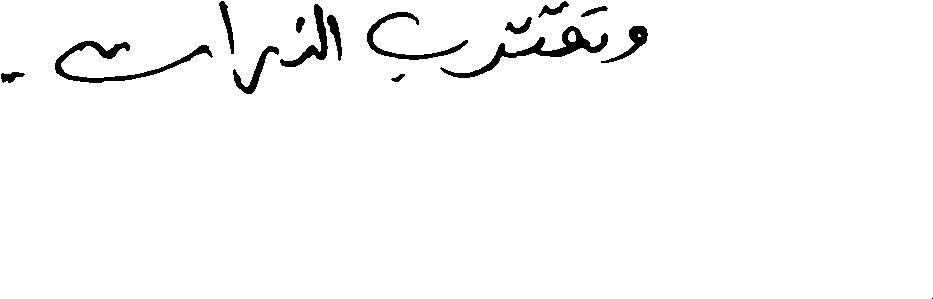 وتقترب الذرات ..